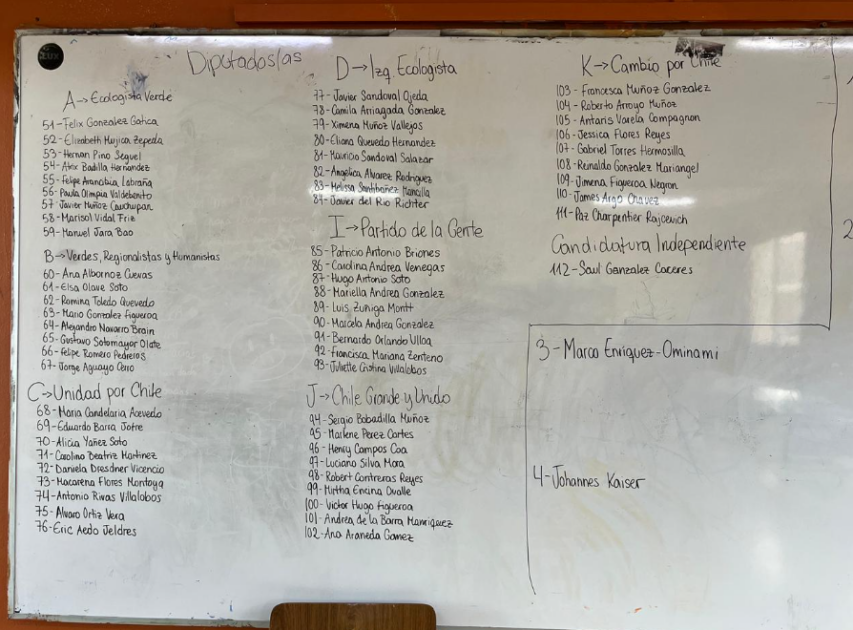 Diputados/as
A→Ecologista Verde
51-Felix Gonzalez Gatica
52-Elizabeth Mujica Zepeda
53-Hernan Pino Seguel
54-Alex Badilla Hernandez
55-Felipe Arancibia Labraña
56-Paula Olimpia Valdebenito
57-Javier Muñoz Cauchupan
58-Marisol Vidal Friz
59-Manuel Jara Bao
B→Verdes, Regionalistas y Humanistas
60-Ana Albornoz Cuevas
61-Elsa Olave Soto
62-Romina Toledo Quevedo
63-Mario Gonzalez Figueroa
64-Alejandro Navarro Brain
65-Gustavo Sotomayor Olate
66-Felipe Romero Pedreros
67-Jorge Aguayo Cerro
C→Unidad por Chile
68-Maria Candelaria Acevedo
69-Eduardo Barra Jofre
70-Alicia Yañez Soto
71-Carolina Beatriz Martinez
72-Daniela Dresdner Vicencio
73-Macarena Flores Montoya
74-Antonio Rivas Villalobos
75-Alvaro Ortiz Vera
76-Eric Aedo Jeldres
D→Izq. Ecologista
77-Javier Sandoval Ojeda
78-Camila Arriagada Gonzalez
79-Ximena Muñoz Vallejos
80-Eliana Quevedo Hernandez
81-Mauricio Sandoval Salazar
82-Angelica Alvarez Rodriguez
83-Melissa Santibañez Mancilla
84-Javier del Rio Richter
I→Partido de la Gente
85-Patricio Antonio Briones
86-Carolina Andrea Venegas
87-Hugo Antonio Soto
88-Mariella Andrea Gonzalez
89-Luis Zuñiga Montt
90-Marcela Andrea Gonzalez
91-Bernardo Orlando Ulloa
92-Francisca Mariana Zenteno
93-Juliette Cristina Villalobos
J→Chile Grande y Unido
94-Sergio Bobadilla Muñoz
95-Marlene Perez Cartes
96-Henry Campos Coa
97-Luciano Silva Mora
98-Robert Contreras Reyes
99-Mirtha Encina Ovalle
100-Victor Hugo Figueroa
101-Andrea de la Barra Manriquez
102-Ana Araneda Gomez
K→Cambio por Chile
103-Francesca Muñoz Gonzalez
104-Roberto Arroyo Muñoz
105-Antaris Varela Compagnon
106-Jessica Flores Reyes
107-Gabriel Torres Hermosilla
108-Reinaldo Gonzalez Mariangel
109-Jimena Figueroa Negron
110-James Argo Chavez
111-Paz Charpentier Rajcevich
Candidatura Independiente
112-Saul Ganzalez Caceres
3-Marco Enriquez-Ominami
4-Johannes Kaiser